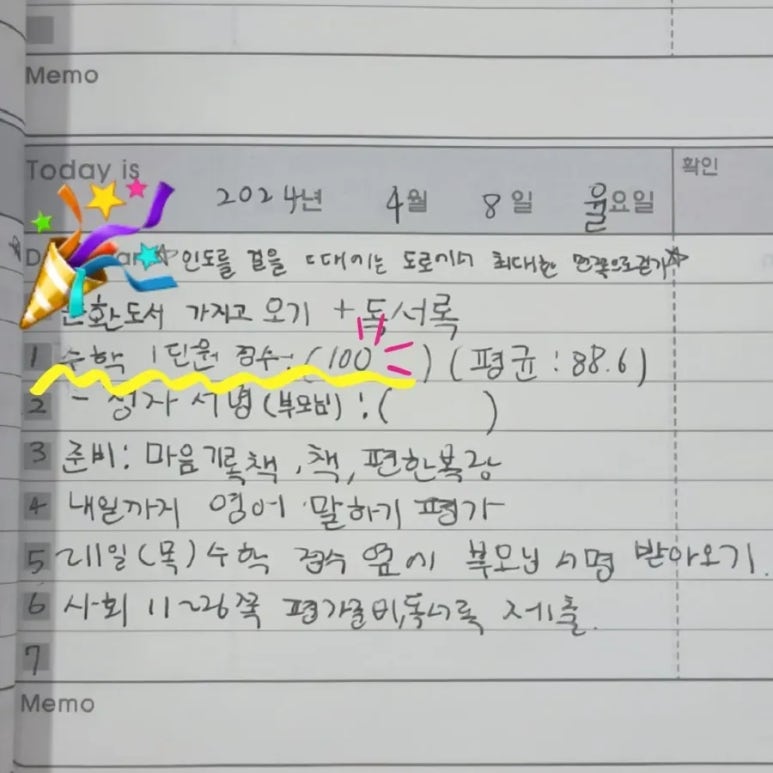 Memo
Today is 2024년 4월 8일 월요일 확인
☆인도를 걸을 때에는 도로에서 최대한 먼쪽으로걷기☆
도서 가지고 오기 + 독서록
1 수학 1단원 점수 : (100) (평균 : 88.6)
2 - 정자 서명 (부모님) : ( )
3 준비: 마음기록책, 책, 편한복장
4 내일까지 영어 말하기 평가
5 ~11일(목) 수학 점수 옆에 부모님 서명 받아오기.
6 사회 11~26쪽 평가준비, 독서록 제출.
7
Memo